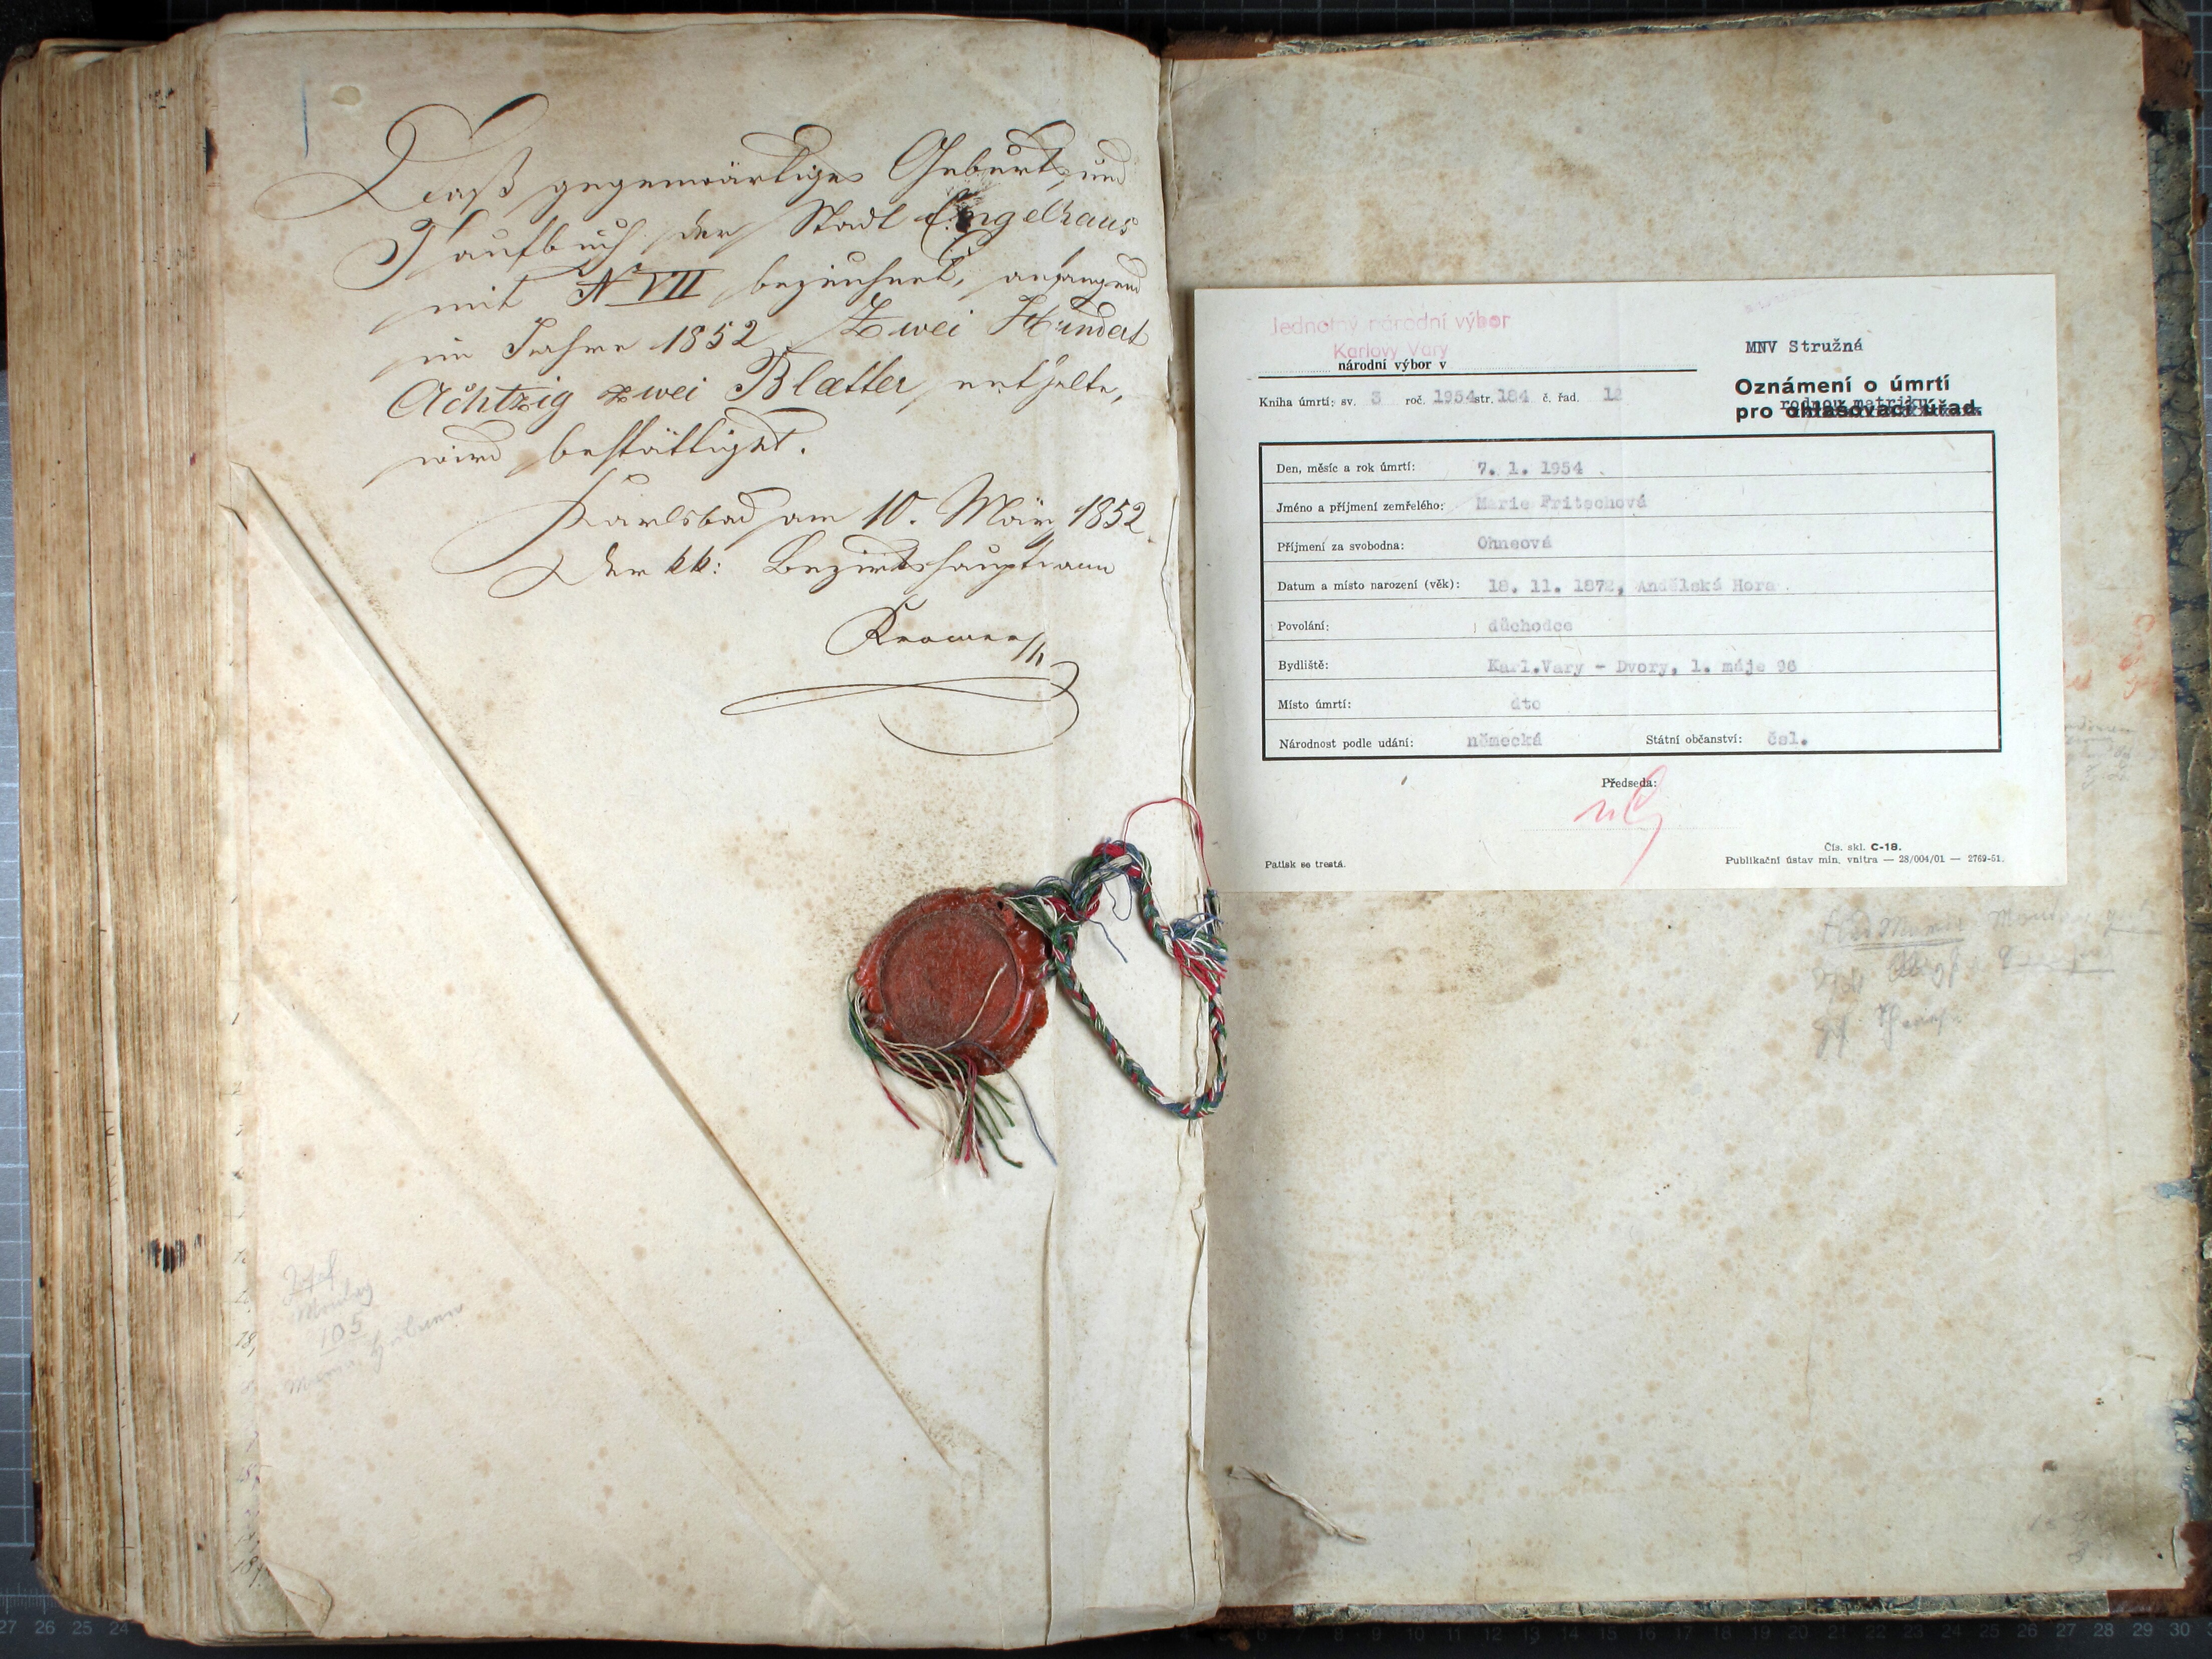 Daß gegenwärtiges Geburts und
Taufbuch der Stadt Engelhaus
mit N VII bezeichnet, anfangend
im Jahre 1852 Zwei Hundert
Achtzig zwei Blætter enthalte,
wird bestättiget.
Karlsbad am 10. März 1852
Der kk: Bezirkshauptmann
Josef
Montag
105
Jednotný národní výbor
Karlovy Vary
národní výbor v
MNV Stružná
Kniha úmrtí: sv. 3 roč. 1954 str. 184 č. řad. 12
Oznámení o úmrtí
rodnou matriku
pro ohlašovací úřad
Den, měsíc a rok úmrtí: 7. 1. 1954
Jméno a příjmení zemřelého: Marie Fritschová
Příjmení za svobodna: Ohneová
Datum a místo narození (věk): 18. 11. 1872, Andělská Hora
Povolání: důchodce
Bydliště: Karl.Vary - Dvory, 1. máje 96
Místo úmrtí: dto
Národnost podle udání: německá Státní občanství: čsl.
Předseda:
Čís. skl. C-18.
Patisk se trestá. Publikační ústav min. vnitra — 28/004/01 — 2769-51.